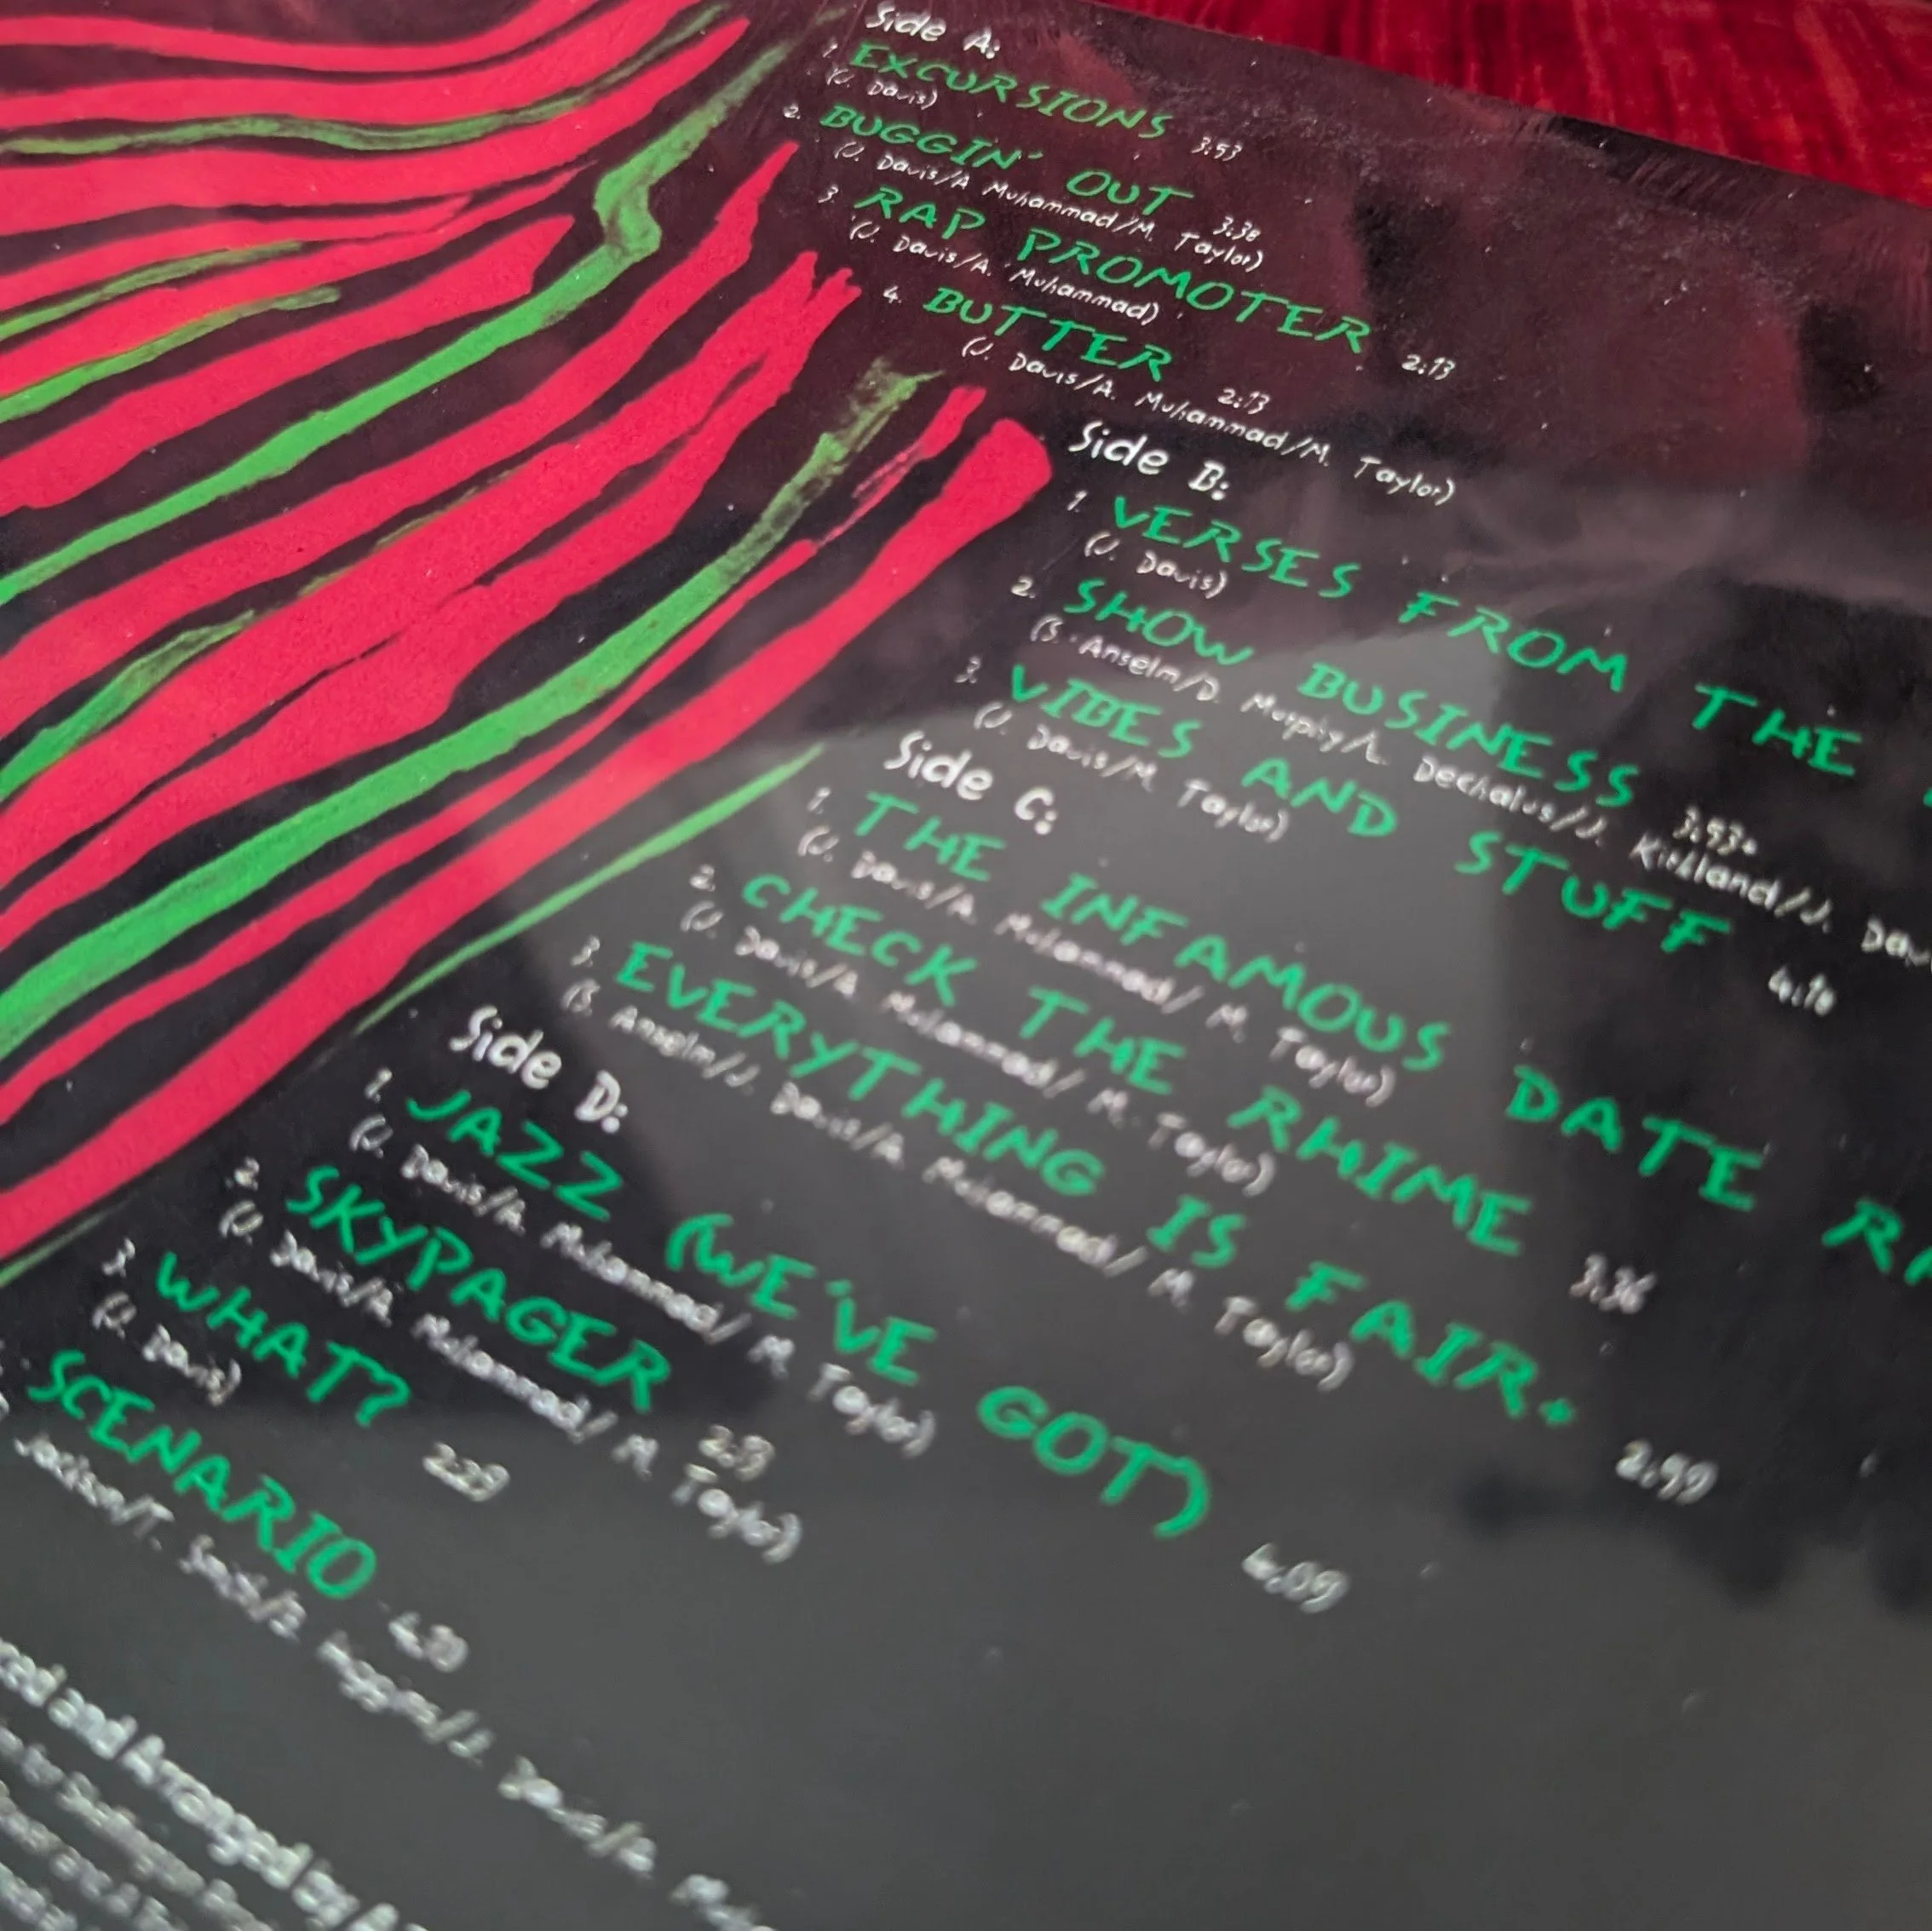 Side A:
1. EXCURSIONS 3:53
(J. Davis)
2. BUGGIN' OUT 3:38
(J. Davis/A Muhammad/M. Taylor)
3. RAP PROMOTER 2:13
(J. Davis/A. Muhammad)
4. BUTTER 2:13
(J. Davis/A. Muhammad/M. Taylor)
Side B:
1. VERSES FROM THE
(J. Davis)
2. SHOW BUSINESS 3:53*
(S. Anselm/D. Murphy/L. Dechalus/J. Kirkland/J.
3. VIBES AND STUFF 4:18
(J. Davis/M. Taylor)
Side C:
1. THE INFAMOUS DATE
(J. Davis/A. Muhammad/ M. Taylor)
2. CHECK THE RHIME 3:36
(J. Davis/A. Muhammad/ M. Taylor)
3. EVERYTHING IS FAIR* 2:59
(S. Anselm/J. Davis/A. Muhammad/ M. Taylor)
Side D:
1. JAZZ (WE'VE GOT) 4:09
(J. Davis/A. Muhammad/ M. Taylor)
2. SKYPAGER
(J. Davis/A. Muhammad/ M. Taylor)
3. WHAT? 2:29
(J. Davis)
SCENARIO
and Arranged by